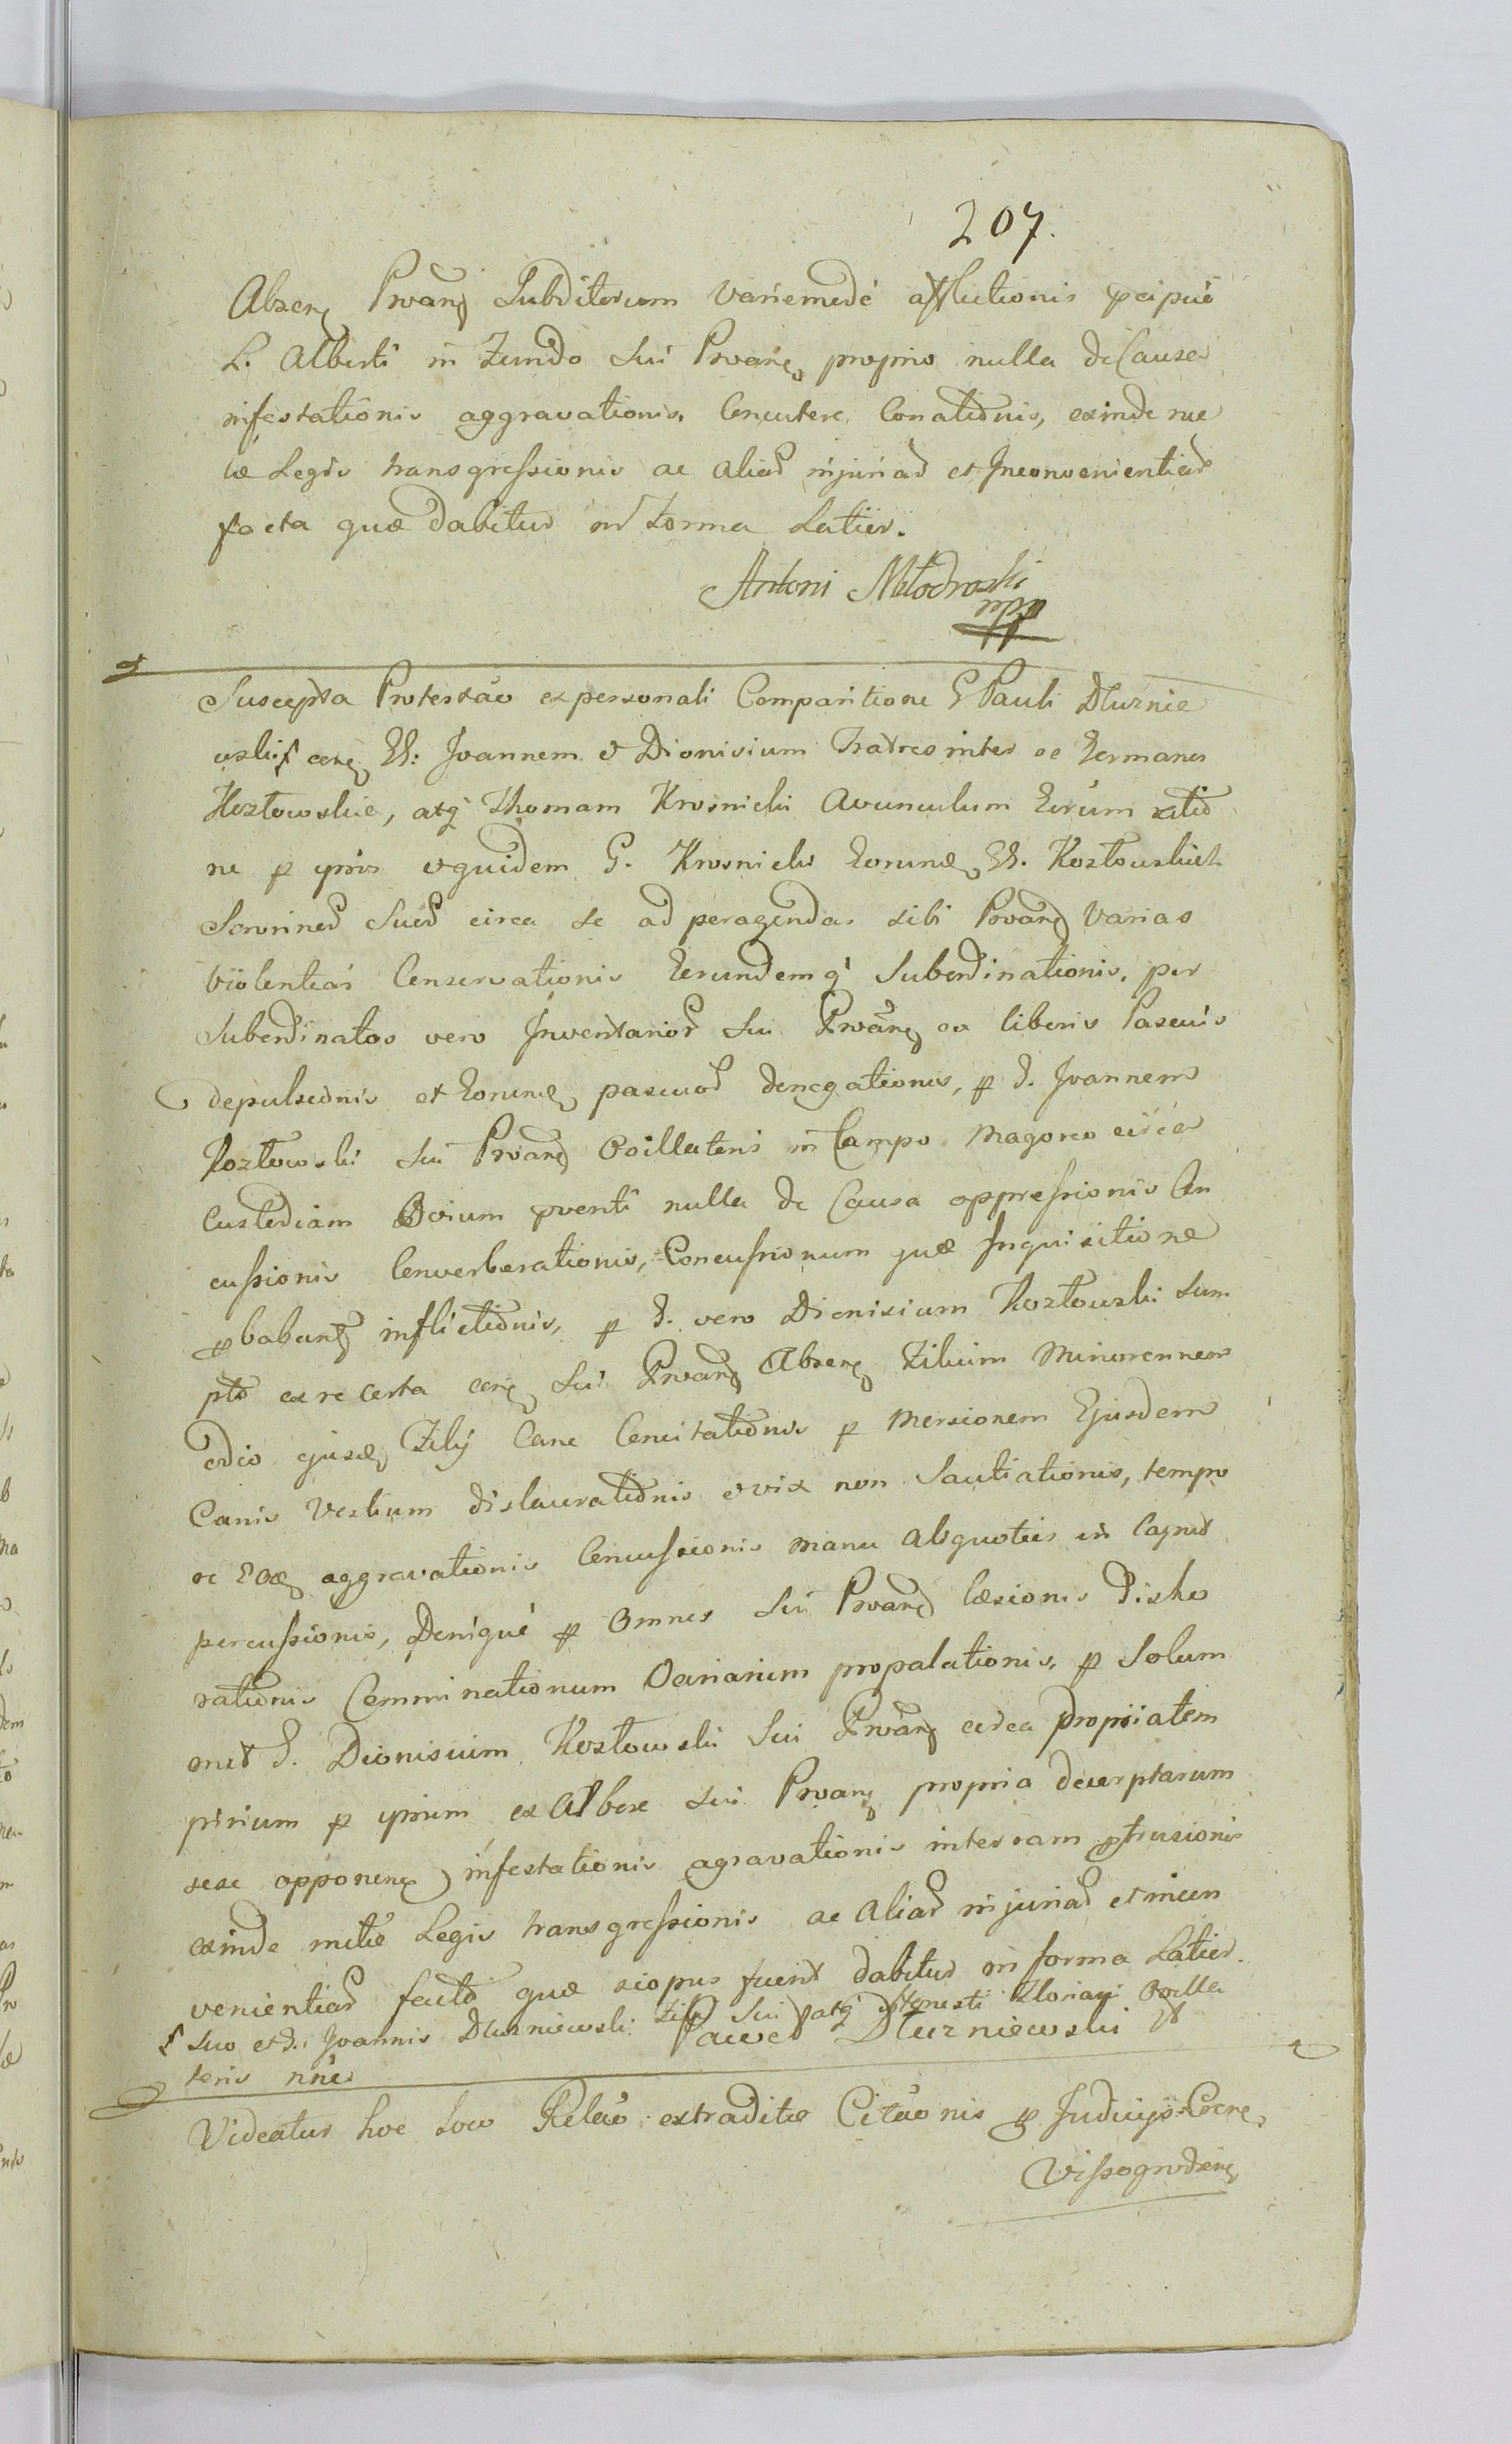 207.
Absen Prvan Subditorum variemode afflictionis pcipue
L. Alberti in Fundo Sui Prvan proprio nulla de Causa
infestationis aggravationis, Concutere Conationis, exinde me
tæ Legis transgressionis ac aliar injuriar et Inconvenientiar
facta quæ dabitur in Forma Latier.
Antoni Młodroski
mpp
Suscepta Protestao ex personali Comparitione G Pauli Dłurnie
wski cerg GG: Joannem et Dionisium Fratres inter se Germanos
Kozłowskie, atq Thomam Krosnicki Avunculum Eorum ratio
ne p ipsos et quidem G. Krosnicki Eorund GG. Kozłowskich
Sororinor Suor circa se ad peragendas sibi Prvan varias
violentias Conservationis Eorundemq Subordinationis, per
Subordinatos vero Inventarior Sui Prvan ex liberis Pascuis
depulsionis et Eorund pascuor denegationis, p G. Joannem
Kozłowski Sui Prvan Opillatoris in Campo Magorco circa
Custodiam Ovium pventi nulla de Causa oppressionis Con
cussionis Converberationis, Concussionum quæ Inquisitione
pbabunt inflictionis, p G. vero Dionisium Kozłowski Sum
pto ex re certa cerg Sui Prvan Absen Filium Minorennem
odio ejusd Filij Cane Concitationis p Mersionem Ejusdem
Canis Vestium dislaurationis et vix non Sautiationis, tempo
re Eod aggravationis Concussionis manu aliquoties in Caput
percussionis, Denique p omnes Sui Prvan læsionis Disho
rationis Comminationum Variarum propalationis, p Solum
met G. Dionisium Kozłowski Sui Prvan circa propriatem
pirium p ipsum ex Albore Sui Prvan propria decerptarum
sese opponen infestationis agravationis inter ram ptrusionis
exinde mitæ Legis transgressionis ac aliar injuriar et incon
venientiar facto quæ si opus fuerit dabitur in forma Latier.
Suo et G. Joannis Dłurniewski Filij Sui atq Honesti Floriani Opilla
toris nne
Paweł Dłurniewski
Videatur hoc loco Relao extraditæ Citaonis p Judicijs Cocne
Vissogroden